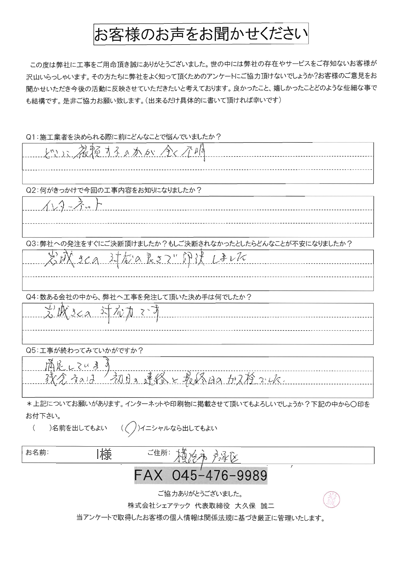 お客様のお声をお聞かせください
この度は弊社に工事をご用命頂き誠にありがとうございました。世の中には弊社の存在やサービスをご存知ないお客様が
沢山いらっしゃいます。その方たちに弊社をよく知って頂くためのアンケートにご協力頂けないでしょうか?お客様のご意見をお
聞かせいただき今後の活動に反映させていただきたいと考えております。良かったこと、嬉しかったことどのような些細な事で
も結構です。是非ご協力お願い致します。（出来るだけ具体的に書いて頂ければ幸いです）
Q1:施工業者を決められる際に前にどんなことで悩んでいましたか?
どこに依頼するのかが全く不明
Q2:何がきっかけで今回の工事内容をお知りになりましたか?
インターネット
Q3:弊社への発注をすぐにご決断頂けましたか?もしご決断されなかったとしたらどんなことが不安になりましたか?
岩城さんの対応の良さで即決しました
Q4:数ある会社の中から、弊社へ工事を発注して頂いた決め手は何でしたか?
岩城さんの対応力です
Q5:工事が終わってみていかがですか?
満足しています
残念なのは初日の連絡と最終日のガス栓でした
＊上記についてお願いがあります。インターネットや印刷物に掲載させて頂いてもよろしいでしょうか?下記の中から〇印を
お付下さい。
（　）名前を出してもよい　（〇）イニシャルなら出してもよい
お名前: I様 ご住所: 横浜市戸塚区
FAX 045-476-9989
ご協力ありがとうございました。
株式会社シェアテック 代表取締役 大久保 誠二
当アンケートで取得したお客様の個人情報は関係法規に基づき厳正に管理いたします。